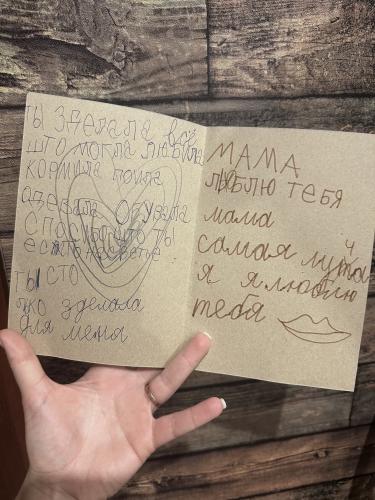 ты зделала всё
што могла любила
кормила поила
адевала обувала
спасибо што ты
есть на свете
ты сто
лко зделала
для меня
МАМА
люблю тебя
мама
самая лутч
я я люблю
тебя